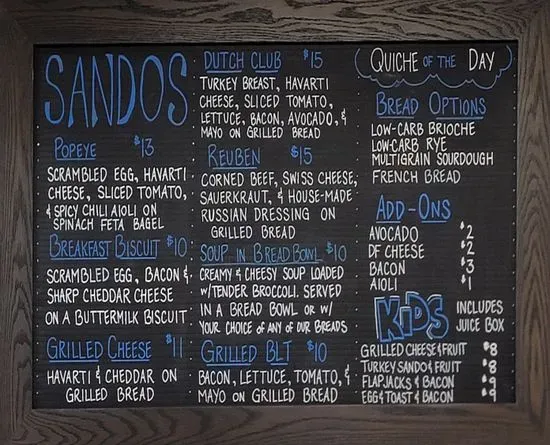 SANDOS
POPEYE $13
SCRAMBLED EGG, HAVARTI
CHEESE, SLICED TOMATO,
& SPICY CHILI AIOLI ON
SPINACH FETA BAGEL
BREAKFAST BISCUIT $10
SCRAMBLED EGG, BACON &
SHARP CHEDDAR CHEESE
ON A BUTTERMILK BISCUIT
GRILLED CHEESE $11
HAVARTI & CHEDDAR ON
GRILLED BREAD
DUTCH CLUB $15
TURKEY BREAST, HAVARTI
CHEESE, SLICED TOMATO,
LETTUCE, BACON, AVOCADO, &
MAYO ON GRILLED BREAD
REUBEN $15
CORNED BEEF, SWISS CHEESE,
SAUERKRAUT, & HOUSE-MADE
RUSSIAN DRESSING ON
GRILLED BREAD
SOUP IN BREAD BOWL $10
CREAMY & CHEESY SOUP LOADED
W/TENDER BROCCOLI. SERVED
IN A BREAD BOWL OR W/
YOUR CHOICE OF ANY OF OUR BREADS
GRILLED BLT $10
BACON, LETTUCE, TOMATO, &
MAYO ON GRILLED BREAD
QUICHE OF THE DAY
BREAD OPTIONS
LOW-CARB BRIOCHE
LOW-CARB RYE
MULTIGRAIN SOURDOUGH
FRENCH BREAD
ADD-ONS
AVOCADO $2
DF CHEESE $2
BACON $3
AIOLI $1
KIDS INCLUDES
JUICE BOX
GRILLED CHEESE & FRUIT $8
TURKEY SANDO & FRUIT $8
FLAPJACKS & BACON $9
EGG & TOAST & BACON $9